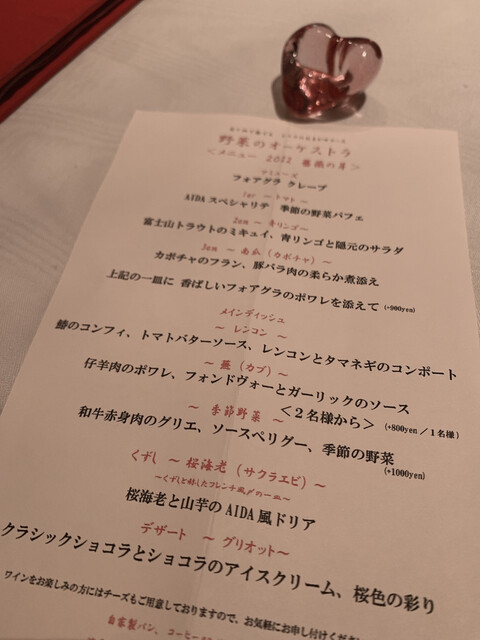 野菜のオーケストラ
＜メニュー 2022 薔薇の月＞
アミューズ
フォアグラ クレープ
1er ～トマト～
AIDAスペシャリテ 季節の野菜パフェ
2em ～青リンゴ～
富士山トラウトのミキュイ、青リンゴと隠元のサラダ
3em ～南瓜（カボチャ）～
カボチャのフラン、豚バラ肉の柔らか煮添え
上記の一皿に 香ばしいフォアグラのポワレを添えて (+900yen)
メインディッシュ
～ レンコン ～
鰆のコンフィ、トマトバターソース、レンコンとタマネギのコンポート
～ 蕪（カブ）～
仔羊肉のポワレ、フォンドヴォーとガーリックのソース
～ 季節野菜 ～ ＜２名様から＞ (+800yen／１名様)
和牛赤身肉のグリエ、ソースペリグー、季節の野菜
(+1000yen)
くずし ～ 桜海老（サクラエビ）～
～くずしと称したフレンチ風〆の一皿～
桜海老と山芋のAIDA風ドリア
デザート ～ グリオット～
クラシックショコラとショコラのアイスクリーム、桜色の彩り
ワインをお楽しみの方にはチーズもご用意しておりますので、お気軽にお申し付けくださ
自家製パン、コーヒー